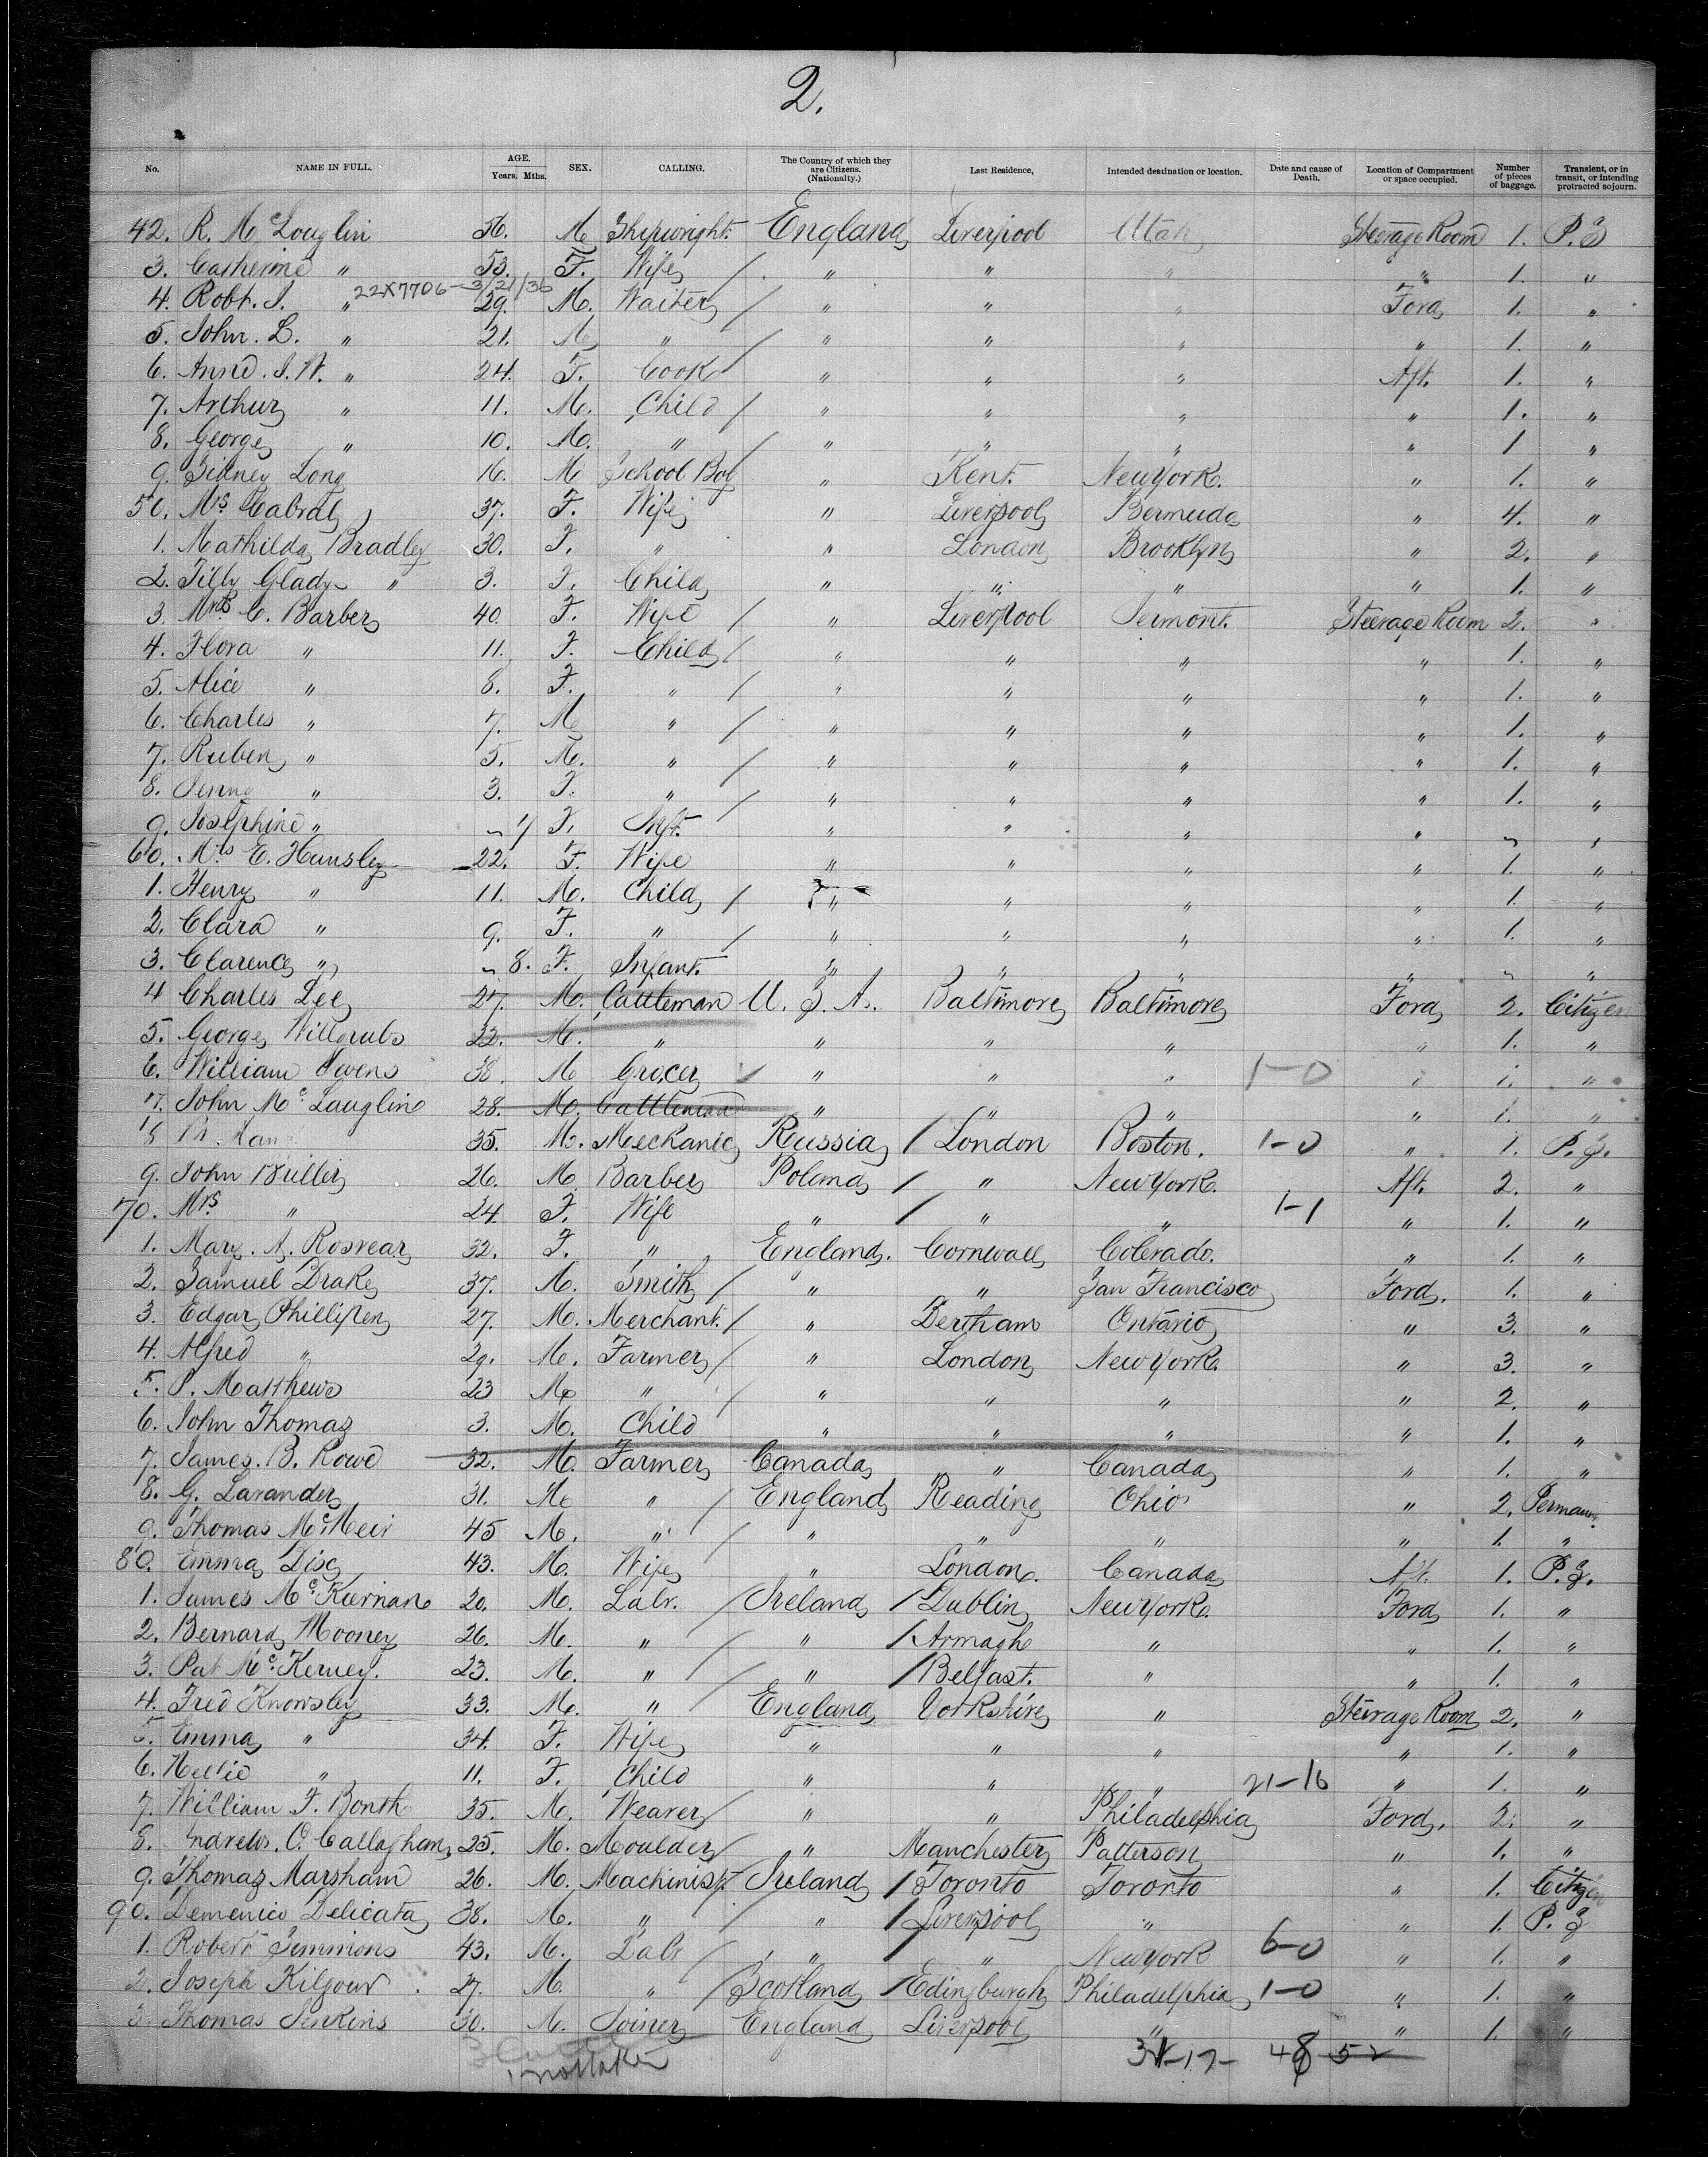 2.
No. NAME IN FULL. AGE. Years. Mths. SEX. CALLING. The Country of which they are Citizens. (Nationality.) Last Residence, Intended destination or location. Date and cause of Death. Location of Compartment or space occupied. Number of pieces of baggage. Transient, or in transit, or intending protracted sojourn.
42. R. McLouglin 56. M Shipwright. England Liverpool Utah Steerage Room 1. P.S
3. Catherine " 53. F. Wife / " " " " 1. "
22X7706-3/21/36
4. Robt. J. " 29. M. Waiter / " " " Ford 1. "
5. John. L. " 21. M " / " " " " 1. "
6. Annd. J. W. " 24. F. Cook " " " Aft. 1. "
7. Arthur " 11. M. Child / " " " " 1. "
8. George " 10. M. " / " " " " 1 "
9. Sidney Long 16. M School Boy " Kent. New York. " 1. "
50. Mrs Cabral 37. F. Wife " Liverpool Bermuda " 4. "
1. Mathilda Bradley 30. F. " " London Brooklyn " 2. "
2. Tilly Gladys " 3. F. Child " " " " 1. "
3. Mrs. C. Barber 40. F. Wife / " Liverpool Vermont. Steerage Room 2. "
4. Flora " 11. F. Child / " " " " 1. "
5. Alice " 8. F. " / " " " " 1. "
6. Charles " 7. M " / " " " " 1. "
7. Ruben " 5. M. " / " " " " 1. "
8. Jenny " 3. F. " / " " " " 1. "
9. Josephine " F. Inft. " " " "
60. Mrs E. Hunsley 22. F. Wife " " " " 1. "
1. Henry " 11. M. Child / " " " " 1. "
2. Clara " 9. F. " / " " " " 1. "
3. Clarence " 8. F. Infant. " " " " "
4 Charles Lee 27. M. Cattleman U.S.A. Baltimore Baltimore Ford 2. Citizen
5. George 32. M. " " " " " 1. "
6. William Owens 38. M Grocer " " " 1-0 " 1. "
7. John McLauglin 28. M. Cattleman " " " " 1. "
8 35. M. Mechanic Russia / London Boston. 1-0 " 1. P.S.
9. John Buller 26. M. Barber Poland / " New York. Aft. 2. "
70. Mrs " 24. F. Wife " / " " 1-1 " 1. "
1. Mary. A. Rosvear 32. F. " England. Cornwall Colerado. " 1. "
2. Samuel Drake 37. M. Smith / " " San Francisco Ford. 1. "
3. Edgar Phillipen 27. M. Merchant. / " Dertham Ontario " 3. "
4. Alfred " 29. M. Farmer / " London New York. " 3. "
5. P. Matthews 23 M " / " " " " 2. "
6. John Thomas 3. M. Child " " " " 1. "
7. James. B. Rowe 32. M. Farmer Canada " Canada " 1. "
8. G. Lavander 31. M " / England Reading Ohio " 2. Perman.
9. Thomas McMeir 45 M. " / " " " " 1. "
80. Emma Disc 43. M. Wife " London. Canada Aft. 1. P.S.
1. James McKiernan 20. M. Labr. / Ireland / Dublin New York. Ford 1. "
2. Bernard Mooney 26. M. " / " / Armagh " " 1. "
3. Pat McKerney. 23. M. " / " / Belfast. " " 1. "
4. Fred Knowsley 33. M. " / England Yorkshire " Steerage Room 2. "
5. Emma " 34. F. Wife " " " " 1. "
6. Nellie " 11. F. Child " " " 21-16 " 1. "
7. William F. Bonth 35. M. Weaver / " " Philadelphia Ford. 2. "
8. Andrew. O. Callaghan 25. M. Moulder / " Manchester Patterson " 1. "
9. Thomas Marsham 26. M. Machinist / Ireland / Toronto Toronto " 1. Citizen
90. Demenico Delicata 38. M. " / " / Liverpool " " 1. P.S
1. Robert Simmons 43. M. Labr / " / " New York 6-0 " 1. "
2. Joseph Kilgour. 27. M. " / Scotland / Edingburgh Philadelphia 1-0 " 1. "
3. Thomas Jenkins 30. M. Joiner England Liverpool " " 1. "
31-17- 48 52